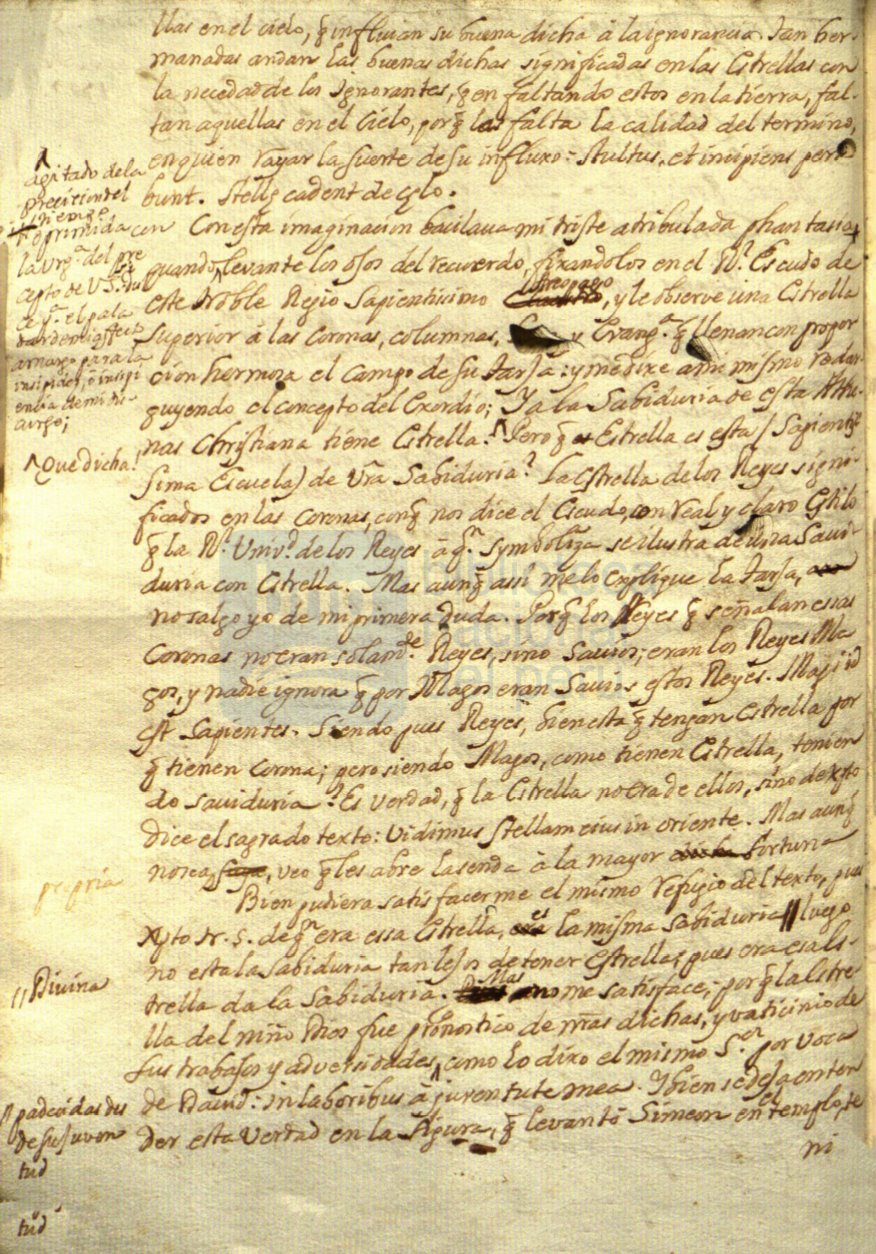 llas en el cielo, q̃ influian su buena dicha à la ignorancia. Tan her-
manadas andan las buenas dichas significadas en las Estrellas con
la necedad de los ignorantes, q̃ en faltando estos en la tierra, fal-
tan aquellas en el Cielo, porq̃ les falta la calidad del termino,
en quien rayar la suerte de su influxo: Stultus, et insipiens peri
bunt. Stellę cadent de cęlo.
Con esta imaginacion bacilaua mi triste atribulada phantasia
quando levante los ojos del recuerdo, fixandolos en el R.l Escudo de
este Noble Regio Sapientissimo Areopago, y le observe una Estrella
superior à las coronas, columnas, y Evang.o q̃ llenan con propor
cion hermosa el campo de su Tarja: y me dixe a mi mismo redar-
guyendo el concepto del Exordio; Ya la Sabiduria de esta Athe-
nas Christiana tiene Estrella. Pero q̃ Estrella es esta (Sapientis
sima Escuela) de vr̃a Sabiduria? La Estrella de los Reyes signi-
ficados en las Coronas, conq̃ nos dice el Escudo, con real y claro Estilo
q̃ la R.l Univ.d de los Reyes à q.n symboliza se ilustra de una Saui-
duria con Estrella. Mas aunq̃ assi me lo explique la Tarja,
no salgo yo de mi primera duda. Porq̃ los Reyes q̃ señalan essas
Coronas no eran solam.te Reyes, sino Sauios; eran los Reyes Ma
gos, y nadie ignora q̃ por Magos eran Sauios estos Reyes. Magi id
est Sapientes. Siendo pues Reyes, bien esta q̃ tengan Estrella por
q̃ tienen Corona; pero siendo Magos, como tienen Estrella, tenien
do sauiduria? Es verdad, q̃ la Estrella no era de ellos, sino de xpto
dice el sagrado texto: Vidimus Stellam eius in oriente. Mas aunq̃
no sea, veo q̃ les abre la senda à la mayor fortuna
Bien pudiera satisfacerme el mismo refugio del texto, pues
Xpto Sr. N. de q.n era essa Estrella, es la misma Sabiduria || luego
no esta la Sabiduria tan lejos de tener Estrella, pues era essa Es-
trella da la Sabiduria. Mas no me satisface, porq̃ la Estre-
lla del niño Dios fue pronostico de nr̃as dichas, y vaticinio de
sus trabajos y adversidades, como lo dixo el mismo S.or por voca
de Dauid: in laboribus à juventute mea. Y bien se deja enten
der esta verdad en la figura, q̃ levantò Simeon en el templo, te
ni
agitado de la
precision del
tiempo
oprimida con
la Urg.a del pre
cepto de V.S.
el pala
amargo para la
insipides, è insipi
encia de mi dis
curso;
Que dicha!
propria
|| Divina
padecidas des
de su juven
tud
tud